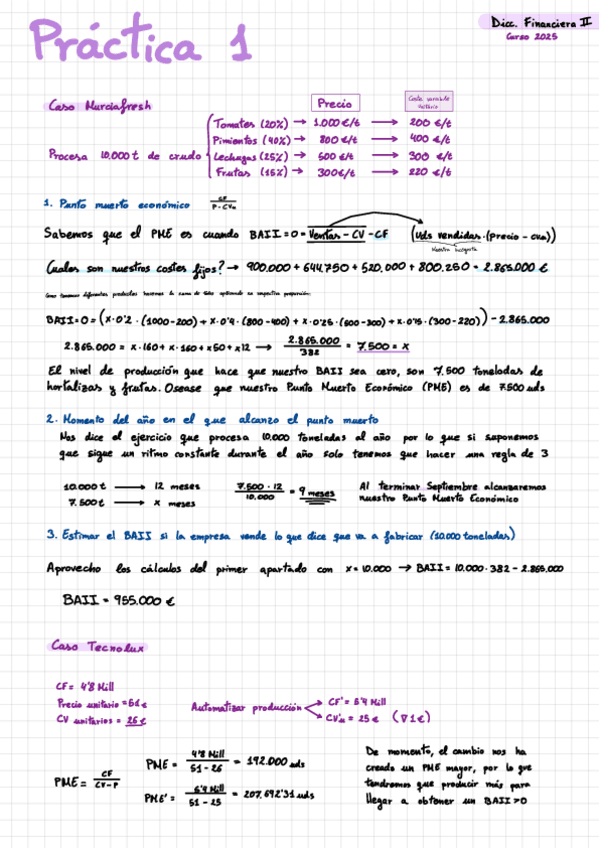 Práctica 1
Dicc. Financiera II
Curso 2025
Caso Murciafresh
Precio
Coste variable
unitario
Procesa 10.000 t de crudo
Tomates (20%) → 1.000 €/t → 200 €/t
Pimientos (40%) → 800 €/t → 400 €/t
Lechugas (25%) → 500 €/t → 300 €/t
Frutas (15%) → 300€/t → 220 €/t
1. Punto muerto económico CF / P - CVu
Sabemos que el PME es cuando BAII = 0 = Ventas - CV - CF (Uds vendidas · (precio - cvu))
Nuestra incógnita
¿Cuales son nuestros costes fijos? → 900.000 + 644.750 + 520.000 + 800.250 = 2.865.000 €
Como tenemos diferentes productos hacemos la suma de todo aplicando su respectiva proporción:
BAII=0=(x·0'2·(1000-200) + x·0'4·(800-400) + x·0'25·(500-300) + x·0'15·(300-220)) - 2.865.000
2.865.000 = x·160 + x·160 + x50 + x12 → 2.865.000 / 382 = 7.500 = x
El nivel de producción que hace que nuestro BAII sea cero, son 7.500 toneladas de
hortalizas y frutas. Osease que nuestro Punto Muerto Económico (PME) es de 7.500 uds
2. Momento del año en el que alcanzo el punto muerto
Nos dice el ejercicio que procesa 10.000 toneladas al año por lo que si suponemos
que sigue un ritmo constante durante el año solo tenemos que hacer una regla de 3
10.000 t → 12 meses
7.500 t → x meses
7.500 · 12 / 10.000 = 9 meses
Al terminar Septiembre alcanzaremos
nuestro Punto Muerto Económico
3. Estimar el BAII si la empresa vende lo que dice que va a fabricar (10.000 toneladas)
Aprovecho los cálculos del primer apartado con x = 10.000 → BAII = 10.000 · 382 - 2.865.000
BAII = 955.000 €
Caso Tecnolux
CF = 4'8 Mill
Precio unitario = 51 €
CV unitarios = 26 €
Automatizar producción
CF' = 5'4 Mill
CV'u = 25 € (∇1€)
PME = CF / CV-P
PME = 4'8 Mill / 51 - 26 = 192.000 uds
PME' = 5'4 Mill / 51 - 25 = 207.692'31 uds
De momento, el cambio nos ha
creado un PME mayor, por lo que
tendremos que producir más para
llegar a obtener un BAII>0